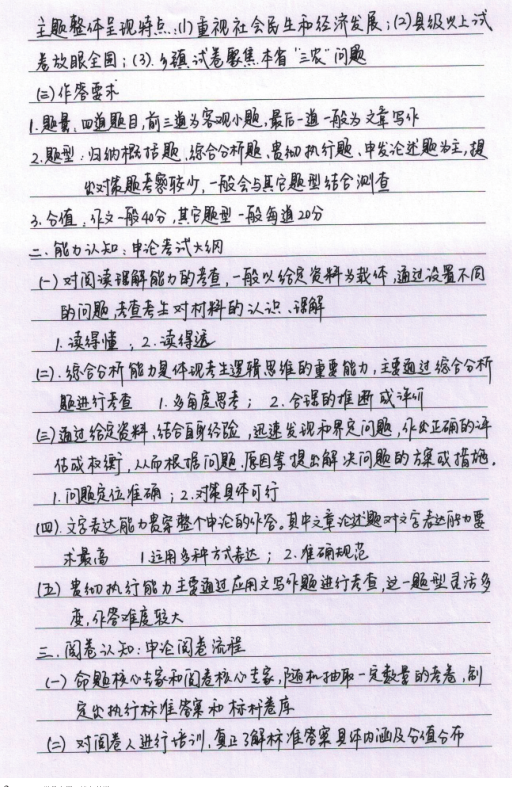 主题整体呈现特点:(1)重视社会民生和经济发展;(2)县级以上试
卷放眼全国;(3)乡镇试卷聚焦本省“三农”问题
(二)作答要求
1.题量:四道题目,前三道为客观小题,最后一道一般为文章写作
2.题型:归纳概括题、综合分析题、贯彻执行题、申发论述题为主,提
出对策题考察较少,一般会与其它题型结合测查
3.分值:作文一般40分,其它题型一般每道20分
二、能力认知:申论考试大纲
(一)对阅读理解能力的考查,一般以给定资料为载体,通过设置不同
的问题,考查考生对材料的认识、理解
1.读得懂;2.读得透
(二).综合分析能力是体现考生逻辑思维的重要能力,主要通过综合分析
题进行考查 1.多角度思考;2.合理的推断或评价
(三)通过给定资料,结合自身经验,迅速发现和界定问题,作出正确的评
估或权衡,从而根据问题、原因等提出解决问题的方案或措施.
1.问题定位准确;2.对策具体可行
(四).文字表达能力贯穿整个申论的作答。其中文章论述题对文字表达能力要
求最高 1.运用多种方式表达;2.准确规范
(五)贯彻执行能力主要通过应用文写作题进行考查,这一题型灵活多
变,作答难度较大
三.阅卷认知:申论阅卷流程
(一)命题核心专家和阅卷核心专家,随机抽取一定数量的考卷,制
定出执行标准答案和标杆卷库
(二)对阅卷人进行培训,真正了解标准答案具体内涵及分值分布